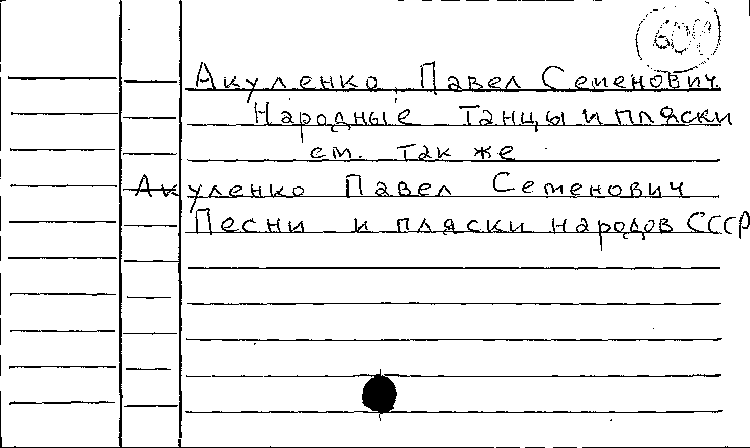 Акуленко, Павел Семенович.
Народные танцы и пляски
см. также
Акуленко Павел Семенович
Песни и пляски народов СССР